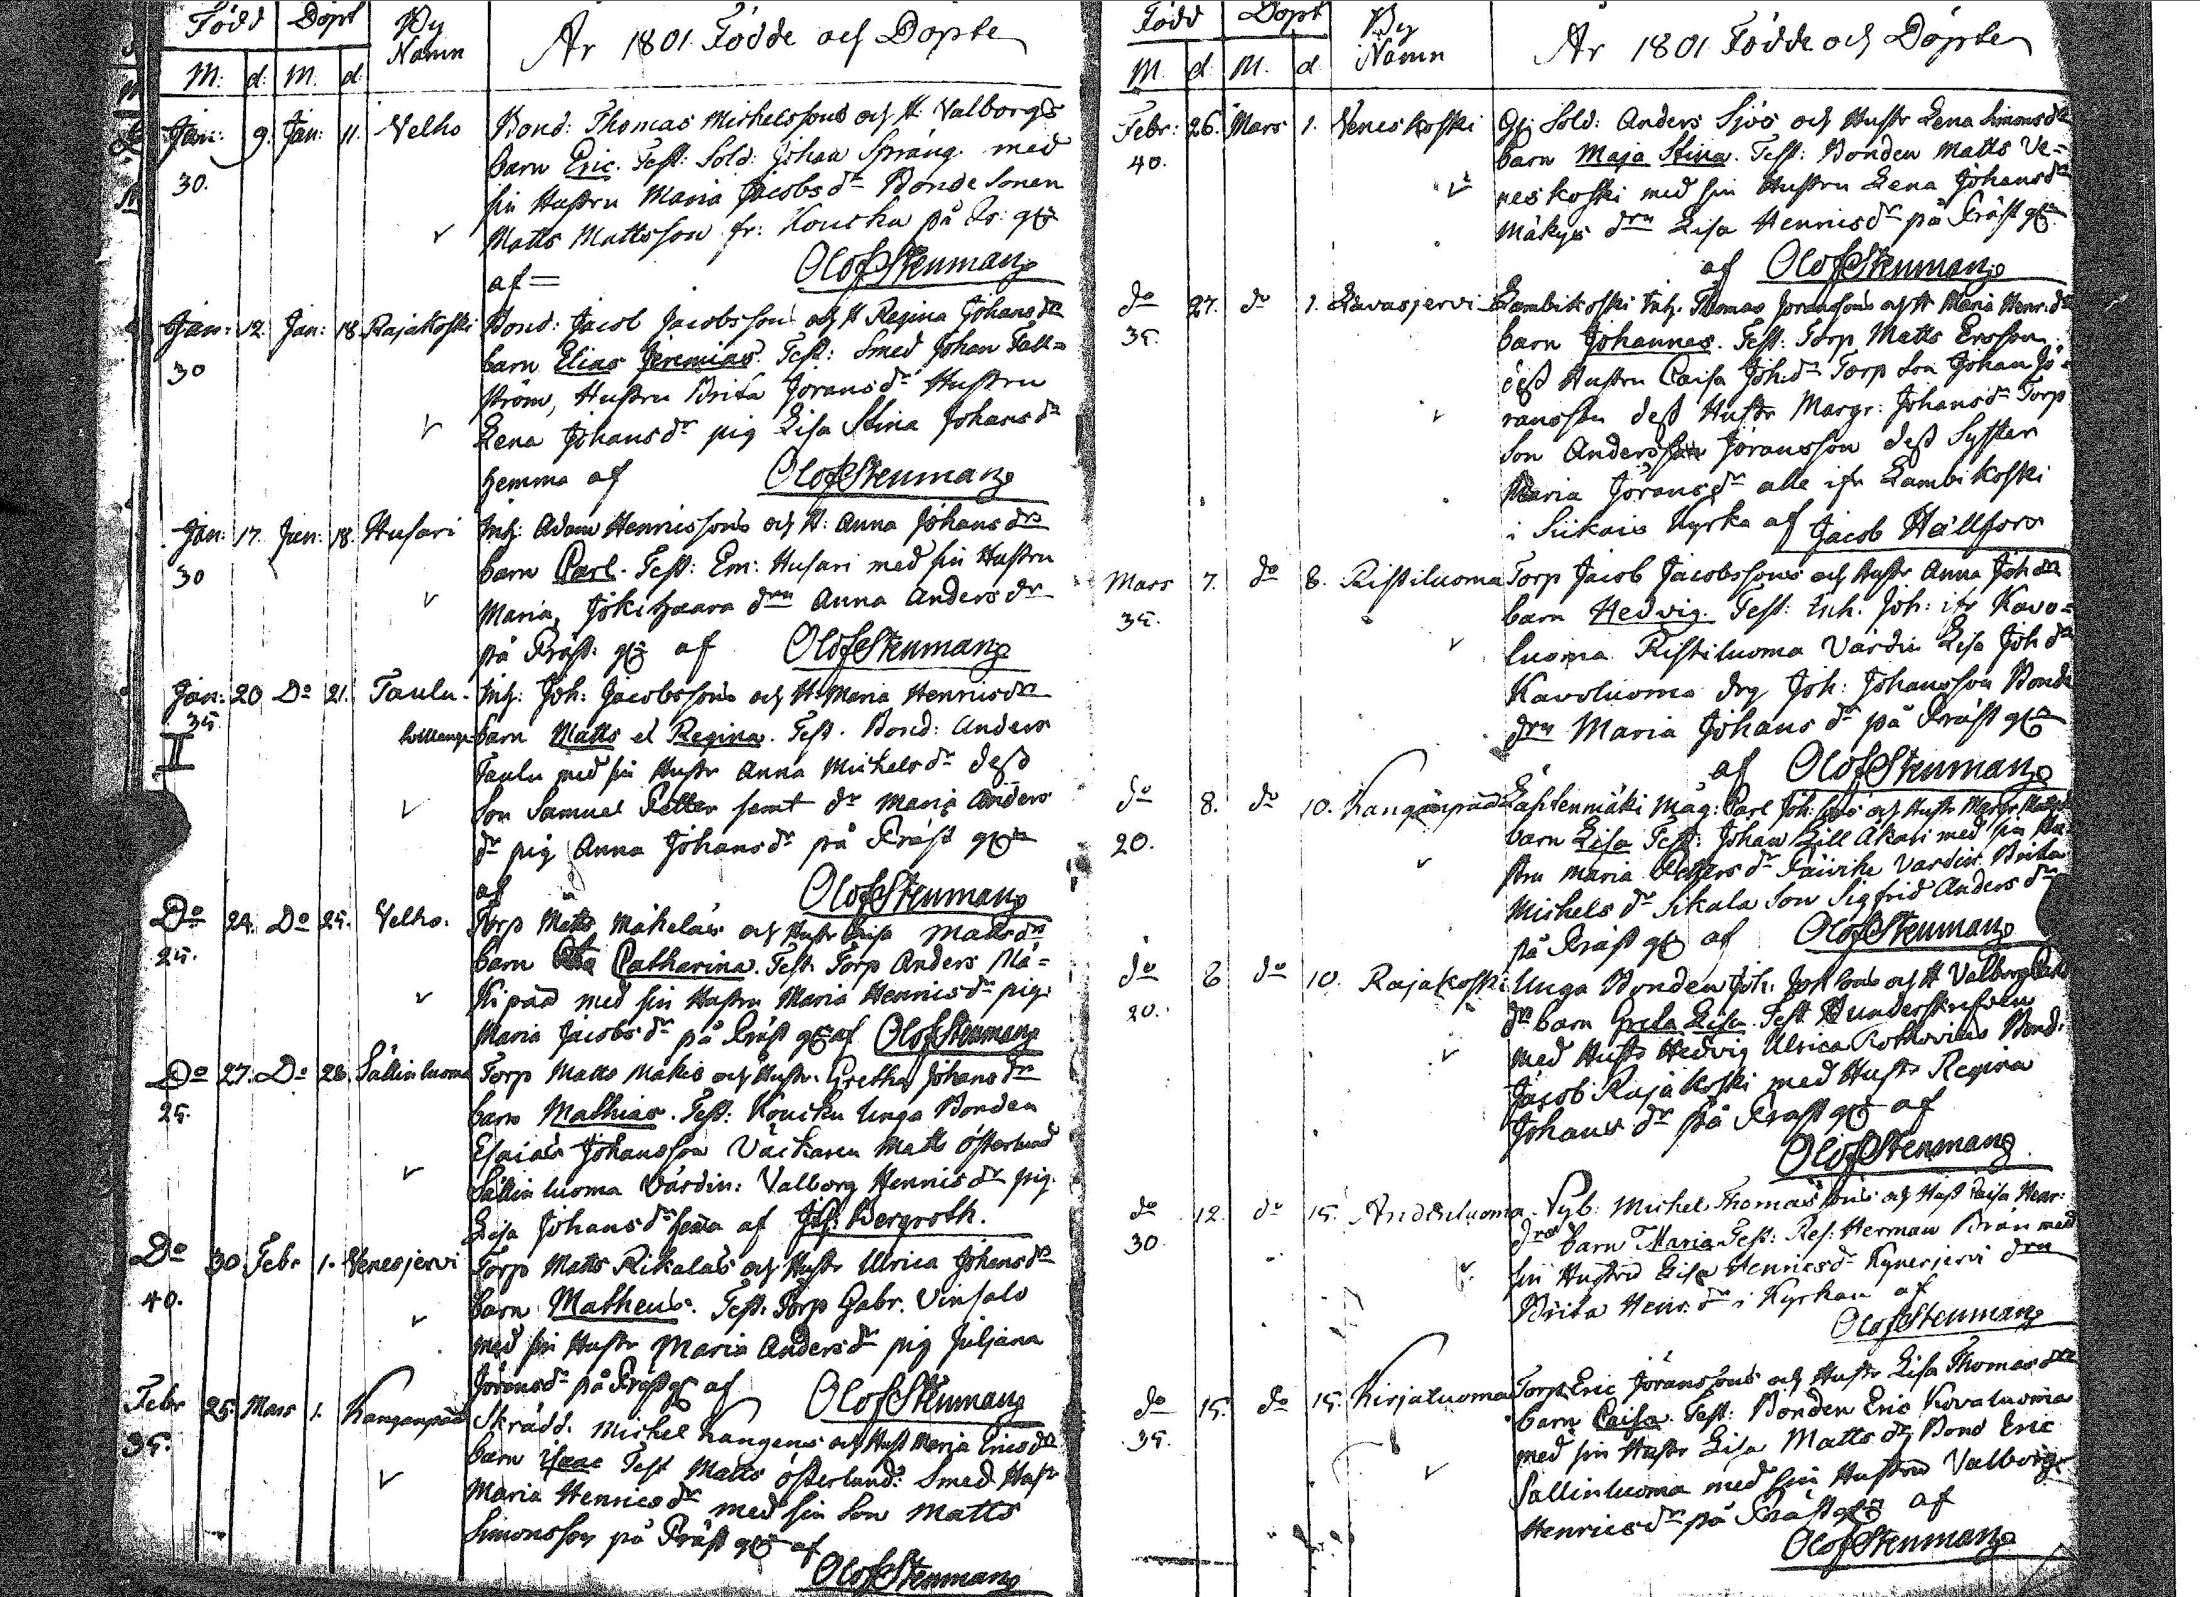 Född Döpt By Namn År 1801 Födde och Döpte
M: d: M. d:
Jan: 9. Jan: 11. Velho Bond: Thomas Michelssons och H: Valborgs
30. barn Eric. Test: Sold: Johan Spräng med
sin Hustru Maria Jacobs dr Bonde Sonen
Matts Mattsson fr: Koucku på Pr: gln
af = Olof Stenman
Jan: 12. Jan: 18. Rajakoski Bond: Jacob Jacobsson och H Regina Johans drs
30 barn Elias Jeremias. Test: Smed Johan Fall=
ström, Hustru Brita Jörans dr Hustru
Lena Johans dr pig Lisa Stina Johans dr
hemma af Olof Stenman
Jan: 17. Jan: 18. Husari Inh: Adam Henricssons och H: Anna Johans drs
30 barn Carl. Test: Em: Husari med sin Hustru
Maria, Jökihaara drn Anna Anders dr
på Präst: gln af Olof Stenman
Jan: 20 Do 21. Taulu. Inh: Joh: Jacobssons och H: Maria Henrics drs
35. barn Matts et Regina. Test. Bond: Anders
II Taulu med sin Hustr Anna Michels dr dess
Son Samuel Petter samt dr Maria Anders
dr pig Anna Johans dr på Präst gln
af Olof Stenman
Do 24. Do 25. Velho. Torp Matts Mäkeläs och Hustr Caisa Matts drs
25. barn Catharina. Test. Torp Anders Mä=
kipää med sin Hustru Maria Henrics dr pig.
Maria Jacobs dr på Präst gln af Olof Stenman
Do 27. Do 28. Sällinluoma Torp Matts Mäkis och Hustr. Gretha Johans drs
25. barn Mathias. Test: Koucku Unga Bonden
Esaias Johansson Väckaren Matts Österlund
Sällinluoma Värdin: Valborg Henrics dr pig.
Lisa Johans dr hema af Joh: Bergroth.
Do 30 Febr 1. Venesjervi Torp Matts Rikalas och Hustr Ulrica Johans drs
40. barn Matheus. Test. Torp Gabr. Vinsalo
med sin Hustr Maria Anders dr pig Juliana
Jörans dr på Präst gln af Olof Stenman
Febr 25. Mars 1. Kangenpää Skrädd. Michel Kangens och Hust Maria Erics drs
35. barn Isaac Test Matts Österlund: Smed Hustr
Maria Henrics dr med sin Son Matts
Simonsson på Präst gln af
Olof Stenman
Född Döpt By Namn År 1801 Födde och Döpte
M. d. M. d
Febr: 26. Mars 1. Veneskoski Sold: Anders Sjös och Hustr Lena Simons drs
40. barn Maja Stina. Test: Bonden Matts Ve=
neskoski med sin Hustru Lena Johans dr
Mäkys drn Lisa Henrics dr på Präst gln
af Olof Stenman
do 27. do 1. Lavasjervi Lambikoski Inh. Thomas Joranssons och H Maria Henr. drs
35. barn Johannes. Test: Torp Matts Ersson
dess Hustru Caisa Joh. dr Torp Son Johan Jö=
ransson dess Hustr Margr: Johans dr Torp
Son Anders Jöransson dess Syster
Maria Jörans dr alle ifr Lambikoski
i Siikais Kyrka af Jacob Hällfors
Mars 7. do 8. Ristiluoma Torp Jacob Jacobssons och Hustr Anna Joh drs
35. barn Hedvig. Test: Inh. Joh: ifr Kavo=
luoma Ristiluoma Värdin Lisa Joh dr
Kavoluoma drg Joh: Johansson Bonde
drn Maria Johans dr på Präst gln
af Olof Stenman
do 8. do 10. Kangänpää Lähtenmäki Mäg: Carl Joh: sons och Hustr Margr.
20. barn Lisa Test: Johan Lill Åkari med sin Hu=
stru Maria Petters dr Päivike Värdin Brita
Michels dr Sikala Son Sigfrid Anders dr
på Präst gln af Olof Stenman
do 8 do 10. Rajakoski Unga Bonden Joh. Joh sons och H Valborg
20. dr barn Greta Lisa. Test Underskrefven
med Hustr Hedvig Ulrica Rothovius Bond.
Jacob Rajakoski med Hustr Regina
Johans dr på Präst gln af
Olof Stenman
do 12. do 15. Andenluoma. Nyb: Michel Thomassons och Hust Caisa Henr:
30. drs barn Maria Test: Ref: Herman Brän med
sin Hustru Lisa Henrics dr Kynerjervi drn
Brita Henr. dr i Kyrkan af
Olof Stenman
do 15. do 15. Kirjaluoma Torp Eric Jöranssons och Hustr Lisa Thomas drs
35. barn Caisa. Test: Bonden Eric Kovaluoma
med sin Hustr Lisa Matts dr Bond Eric
Sällinluoma med sin Hustru Valborg
Henrics dr på Präst gln af
Olof Stenman